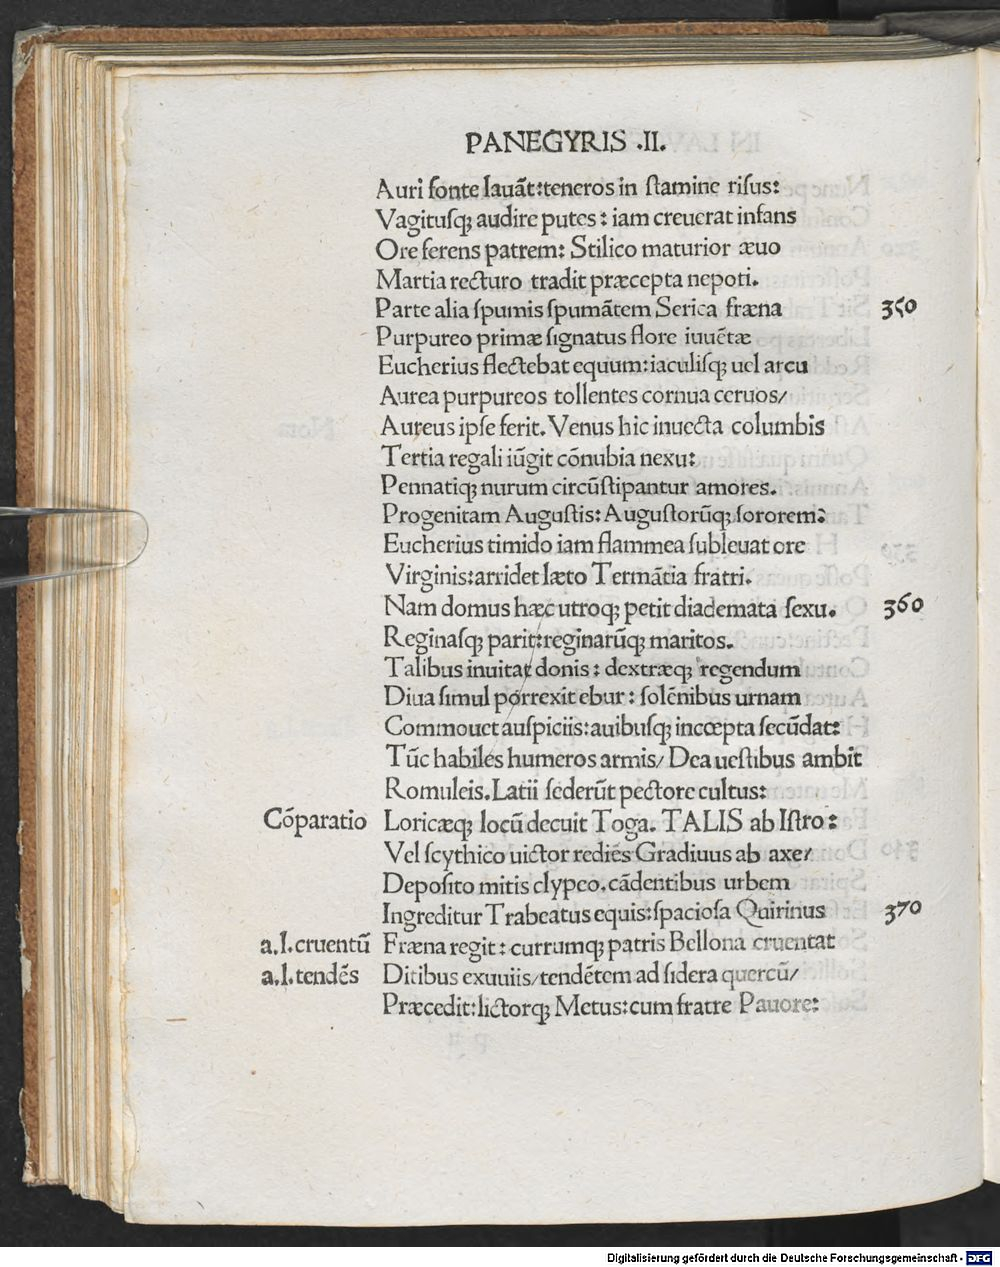 PANEGYRIS .II.
Auri fonte lauāt:teneros in ſtamine riſus:
Vagituſq; audire putes: iam creuerat infans
Ore ferens patrem: Stilico maturior æuo
Martia recturo tradit præcepta nepoti.
Parte alia ſpumis ſpumātem Serica fræna 350
Purpureo primæ ſignatus flore iuuētæ
Eucherius flectebat equum:iaculiſq; uel arcu
Aurea purpureos tollentes cornua ceruos/
Aureus ipſe ferit. Venus hic inuecta columbis
Tertia regali iūgit cōnubia nexu:
Pennatiq; nurum circūſtipantur amores.
Progenitam Auguſtis: Auguſtorūq; ſororem:
Eucherius timido iam flammea ſubleuat ore
Virginis:arridet læto Termātia fratri.
Nam domus hæc utroq; petit diademata ſexu. 360
Reginaſq; parit:reginarūq; maritos.
Talibus inuitat donis: dextræq; regendum
Diua ſimul porrexit ebur: ſolēnibus urnam
Commouet auſpiciis:auibuſq; incœpta ſecūdat:
Tūc habiles humeros armis/ Dea ueſtibus ambit
Romuleis. Latii ſederūt pectore cultus:
Cōparatio Loricæq; locū decuit Toga. TALIS ab Iſtro:
Vel ſcythico uictor rediēs Gradiuus ab axe/
Depoſito mitis clypeo. cādentibus urbem
Ingreditur Trabeatus equis:ſpacioſa Quirinus 370
a.l.cruentū Fræna regit: currumq; patris Bellona cruentat
a.l.tendēs Ditibus exuuiis/tendētem ad ſidera quercū/
Præcedit:lictorq; Metus:cum fratre Pauore:
Digitalisierung gefördert durch die Deutsche Forschungsgemeinschaft - DFG